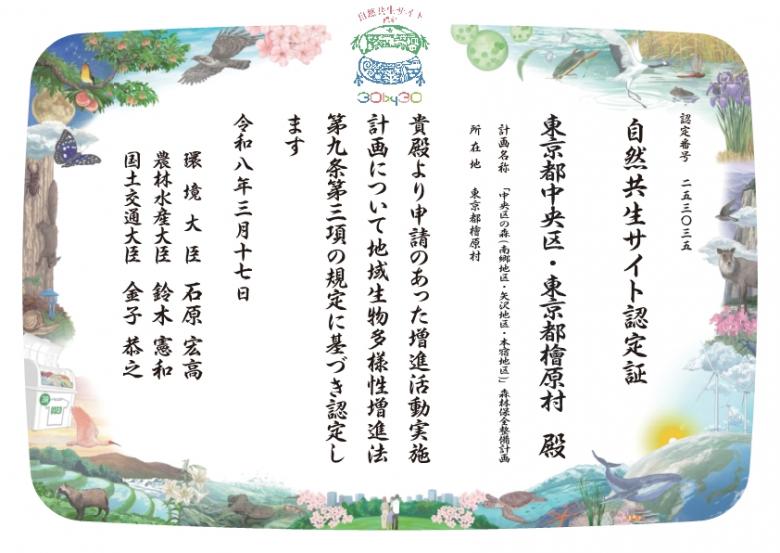 自然共生サイト
認定
30by30
認定番号 二五三〇三五
自然共生サイト認定証
東京都中央区・東京都檜原村 殿
計画名称 「中央区の森(南郷地区・矢沢地区・本宿地区)」森林保全整備計画
所在地 東京都檜原村
貴殿より申請のあった増進活動実施
計画について地域生物多様性増進法
第九条第三項の規定に基づき認定し
ます
令和八年三月十七日
環境大臣 石原 宏高
農林水産大臣 鈴木 憲和
国土交通大臣 金子 恭之
USED